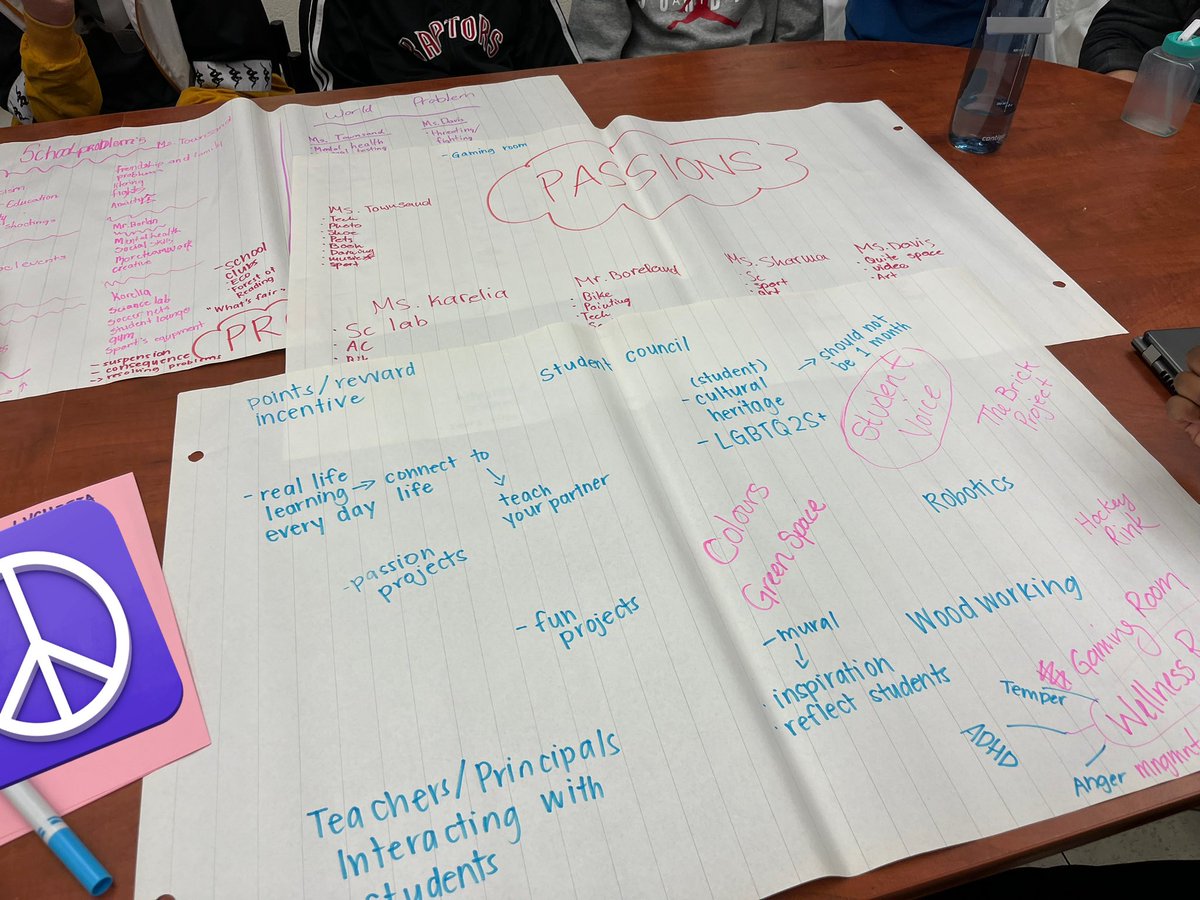 RAPTORS
contigo
School problem's
Ms. Townsand
Friendship and
problems
fights
Education
shootings
events
Mental health
Social skills
More teamwork
creative
Karelia
Science lab
Soccer nets
Student lounge
gym
Sport's equipment
- suspension
- consequence
-> resolving problems
- school
clubs
ECO
Forest of
Reading
"What's fair"
PR
World Problem
Ms. Townsand
Mental health
testing
Ms. Davis
threating/
fighting
- Gaming room
PASSIONS
Ms. Townsand
Tech
Photo
Shoe
Pets
Book
Dancing
music
sport
Ms. Karelia
Sc lab
AC
Mr. Boreland
Bike
Painting
Tech
Ms. Sharma
Sc
sport
art
Ms. Davis
Quite space
video
Art
points/reward
incentive
Student council
(student)
- cultural
heritage
→ should not
be 1 month
- LGBTQ2S+
Student
Voice
The Brick
Project
- real life
learning → connect to
every day life
teach
your partner
- passion
projects
- fun
projects
Colours
Green Space
Robotics
Hockey
Rink
- mural
· inspiration
· reflect students
Wood working
Gaming Room
Wellness R
Temper
ADHD
Anger
mngmnt
Teachers/Principals
Interacting with
students